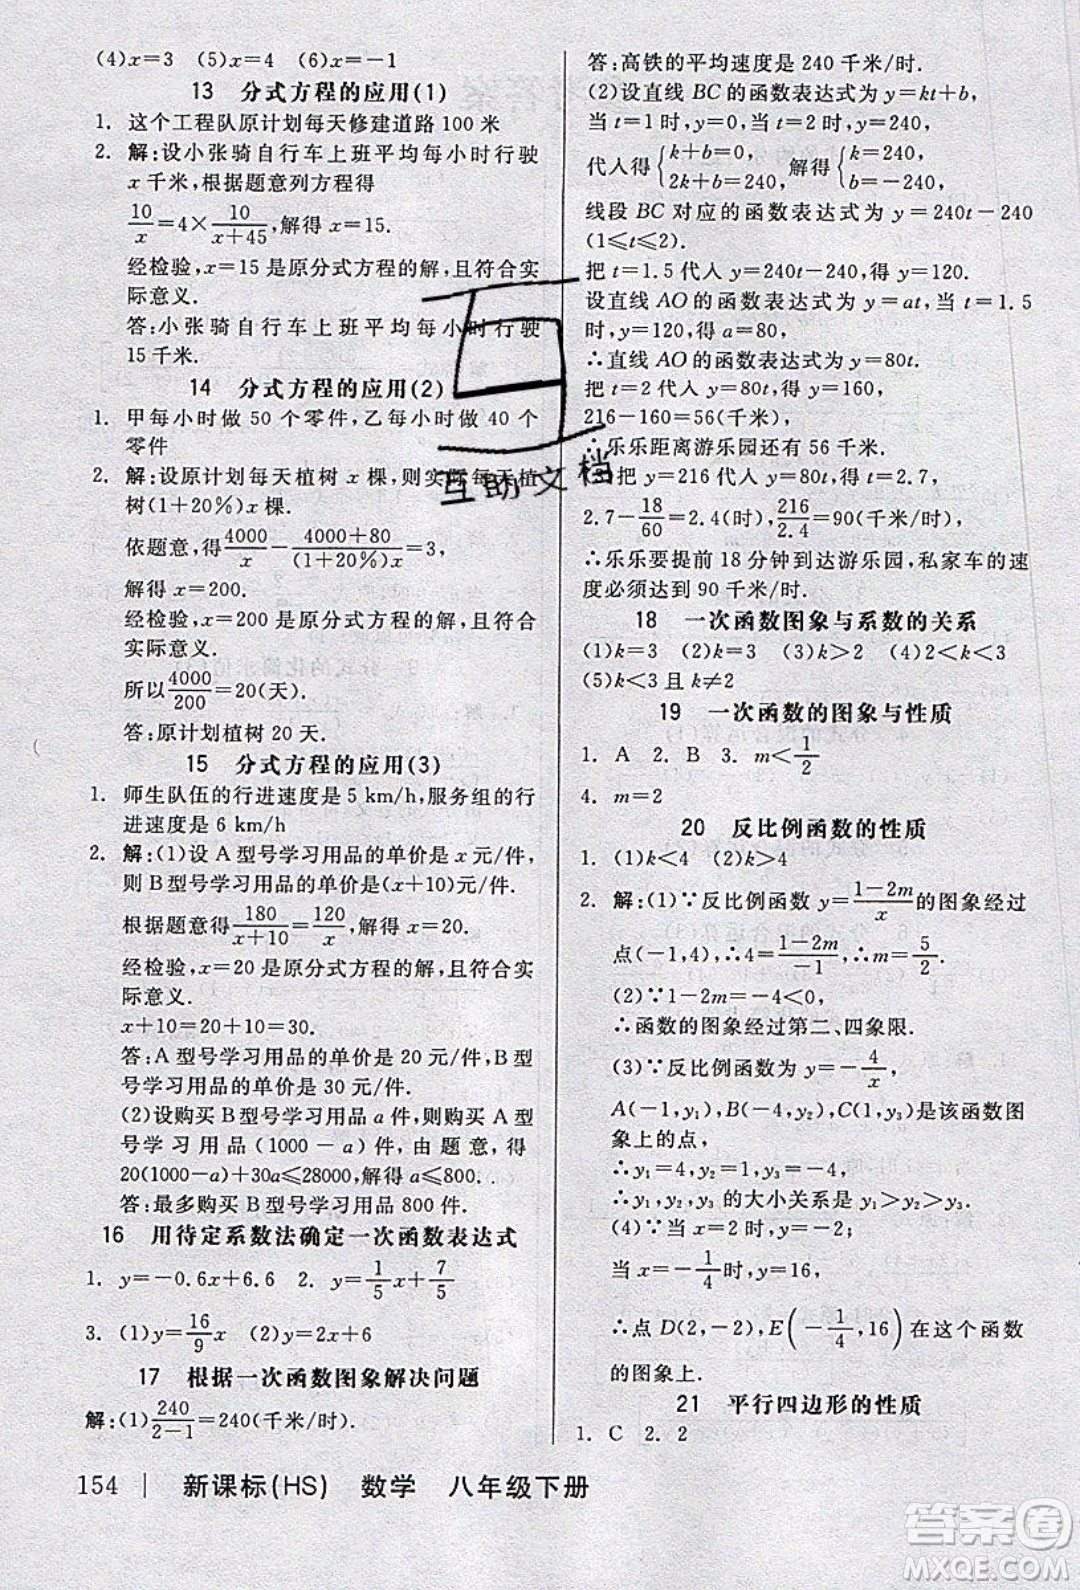 (4)x=3 (5)x=4 (6)x=-1
13 分式方程的应用(1)
1. 这个工程队原计划每天修建道路 100 米
2. 解:设小张骑自行车上班平均每小时行驶
x 千米,根据题意列方程得
10/x=4×10/(x+45),解得 x=15.
经检验,x=15 是原分式方程的解,且符合实
际意义.
答:小张骑自行车上班平均每小时行驶
15 千米.
14 分式方程的应用(2)
1. 甲每小时做 50 个零件,乙每小时做 40 个
零件
2. 解:设原计划每天植树 x 棵,则实际每天植
树(1+20%)x 棵.
依题意,得4000/x-(4000+80)/((1+20%)x)=3,
解得 x=200.
经检验,x=200 是原分式方程的解,且符合
实际意义.
所以4000/200=20(天).
答:原计划植树 20 天.
15 分式方程的应用(3)
1. 师生队伍的行进速度是 5 km/h,服务组的行
进速度是 6 km/h
2. 解:(1)设 A 型号学习用品的单价是 x 元/件,
则 B 型号学习用品的单价是(x+10)元/件.
根据题意得180/(x+10)=120/x,解得 x=20.
经检验,x=20 是原分式方程的解,且符合实
际意义.
x+10=20+10=30.
答:A 型号学习用品的单价是 20 元/件,B 型
号学习用品的单价是 30 元/件.
(2)设购买 B 型号学习用品 a 件,则购买 A 型
号学习用品(1000-a)件,由题意,得
20(1000-a)+30a≤28000,解得 a≤800.
答:最多购买 B 型号学习用品 800 件.
16 用待定系数法确定一次函数表达式
1. y=-0.6x+6.6 2. y=1/5x+7/5
3. (1)y=16/9x (2)y=2x+4
17 根据一次函数图象解决问题
解:(1)240/(2-1)=240(千米/时).
答:高铁的平均速度是 240 千米/时.
(2)设直线 BC 的函数表达式为 y=kt+b,
当 t=1 时,y=0,当 t=2 时,y=240,
代入得{k+b=0, 2k+b=240,解得{k=240, b=-240,
线段 BC 对应的函数表达式为 y=240t-240
(1≤t≤2).
把 t=1.5 代入 y=240t-240,得 y=120.
设直线 AO 的函数表达式为 y=at,当 t=1.5
时,y=120,得 a=80,
∴直线 AO 的函数表达式为 y=80t.
把 t=2 代入 y=80t,得 y=160,
216-160=56(千米),
∴乐乐距离游乐园还有 56 千米.
(3)把 y=216 代入 y=80t,得 t=2.7,
2.7-18/60=2.4(时),216/2.4=90(千米/时),
∴乐乐要提前 18 分钟到达游乐园,私家车的速
度必须达到 90 千米/时.
18 一次函数图象与系数的关系
(1)k=3 (2)k=2 (3)k>2 (4)2<k<3
(5)k<3 且 k≠2
19 一次函数的图象与性质
1. A 2. B 3. m<1/2
4. m=2
20 反比例函数的性质
1. (1)k<4 (2)k>4
2. 解:(1)∵反比例函数 y=(1-2m)/x的图象经过
点(-1,4),∴4=(1-2m)/-1,∴m=5/2.
(2)∵1-2m=-4<0,
∴函数的图象经过第二、四象限.
(3)∵反比例函数为 y=-4/x,
A(-1,y₁),B(2,y₂),C(1,y₃)是该函数图
象上的点,
∴y₁=4,y₂=-2,y₃=-4,
∴y₁,y₂,y₃ 的大小关系是 y₁>y₂>y₃.
(4)∵当 x=2 时,y=-2,
当 x=-1/4时,y=16,
∴点 D(2,-2),E(-1/4,16)在这个函数
的图象上.
21 平行四边形的性质
1. C 2. 2
154 | 新课标(HS) 数学 八年级下册
互助文档
答案圈
MXQE.COM